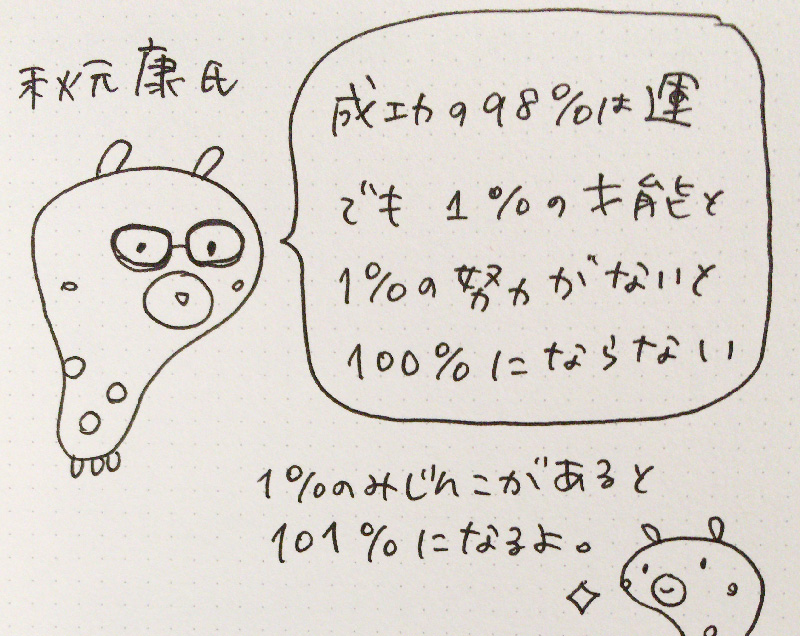 秋元康氏
成功の98%は運
でも1%の才能と
1%の努力がないと
100%にならない
1%のみじんこがあると
101%になるよ。